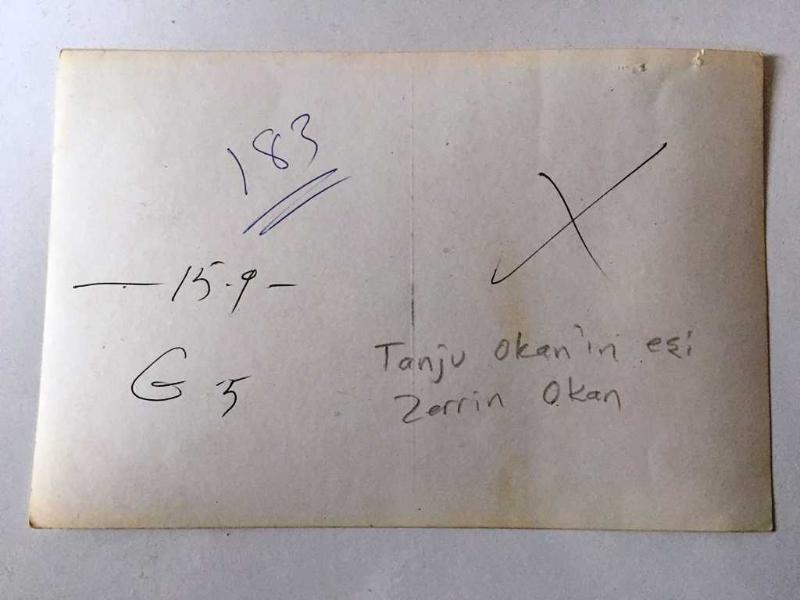 183
— 15.9 —
G 5
X
Tanju Okan'ın eşi
Zerrin Okan